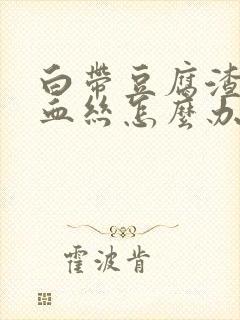 白帶豆腐渣
血絲怎麼办
霍波肯